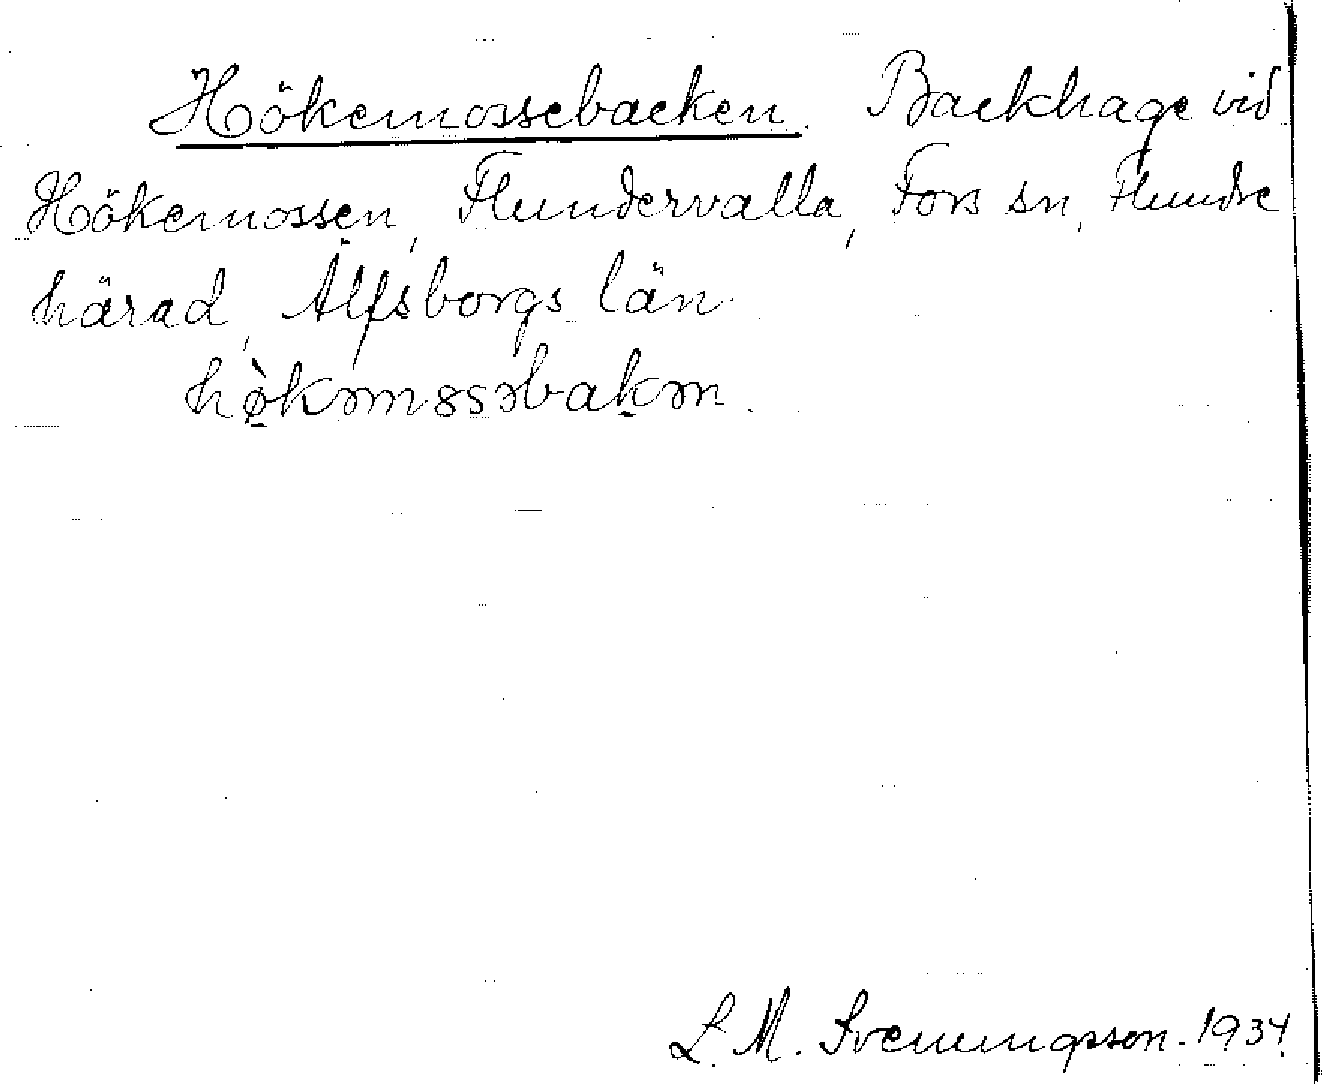 Hökemossebacken. Backhage vid
Hökemossen, Flundervalla, Fors sn, Flundre
härad, Älfsborgs län.
hø̀kəm8səbakən.
L. M. Svenningsson. 1934.